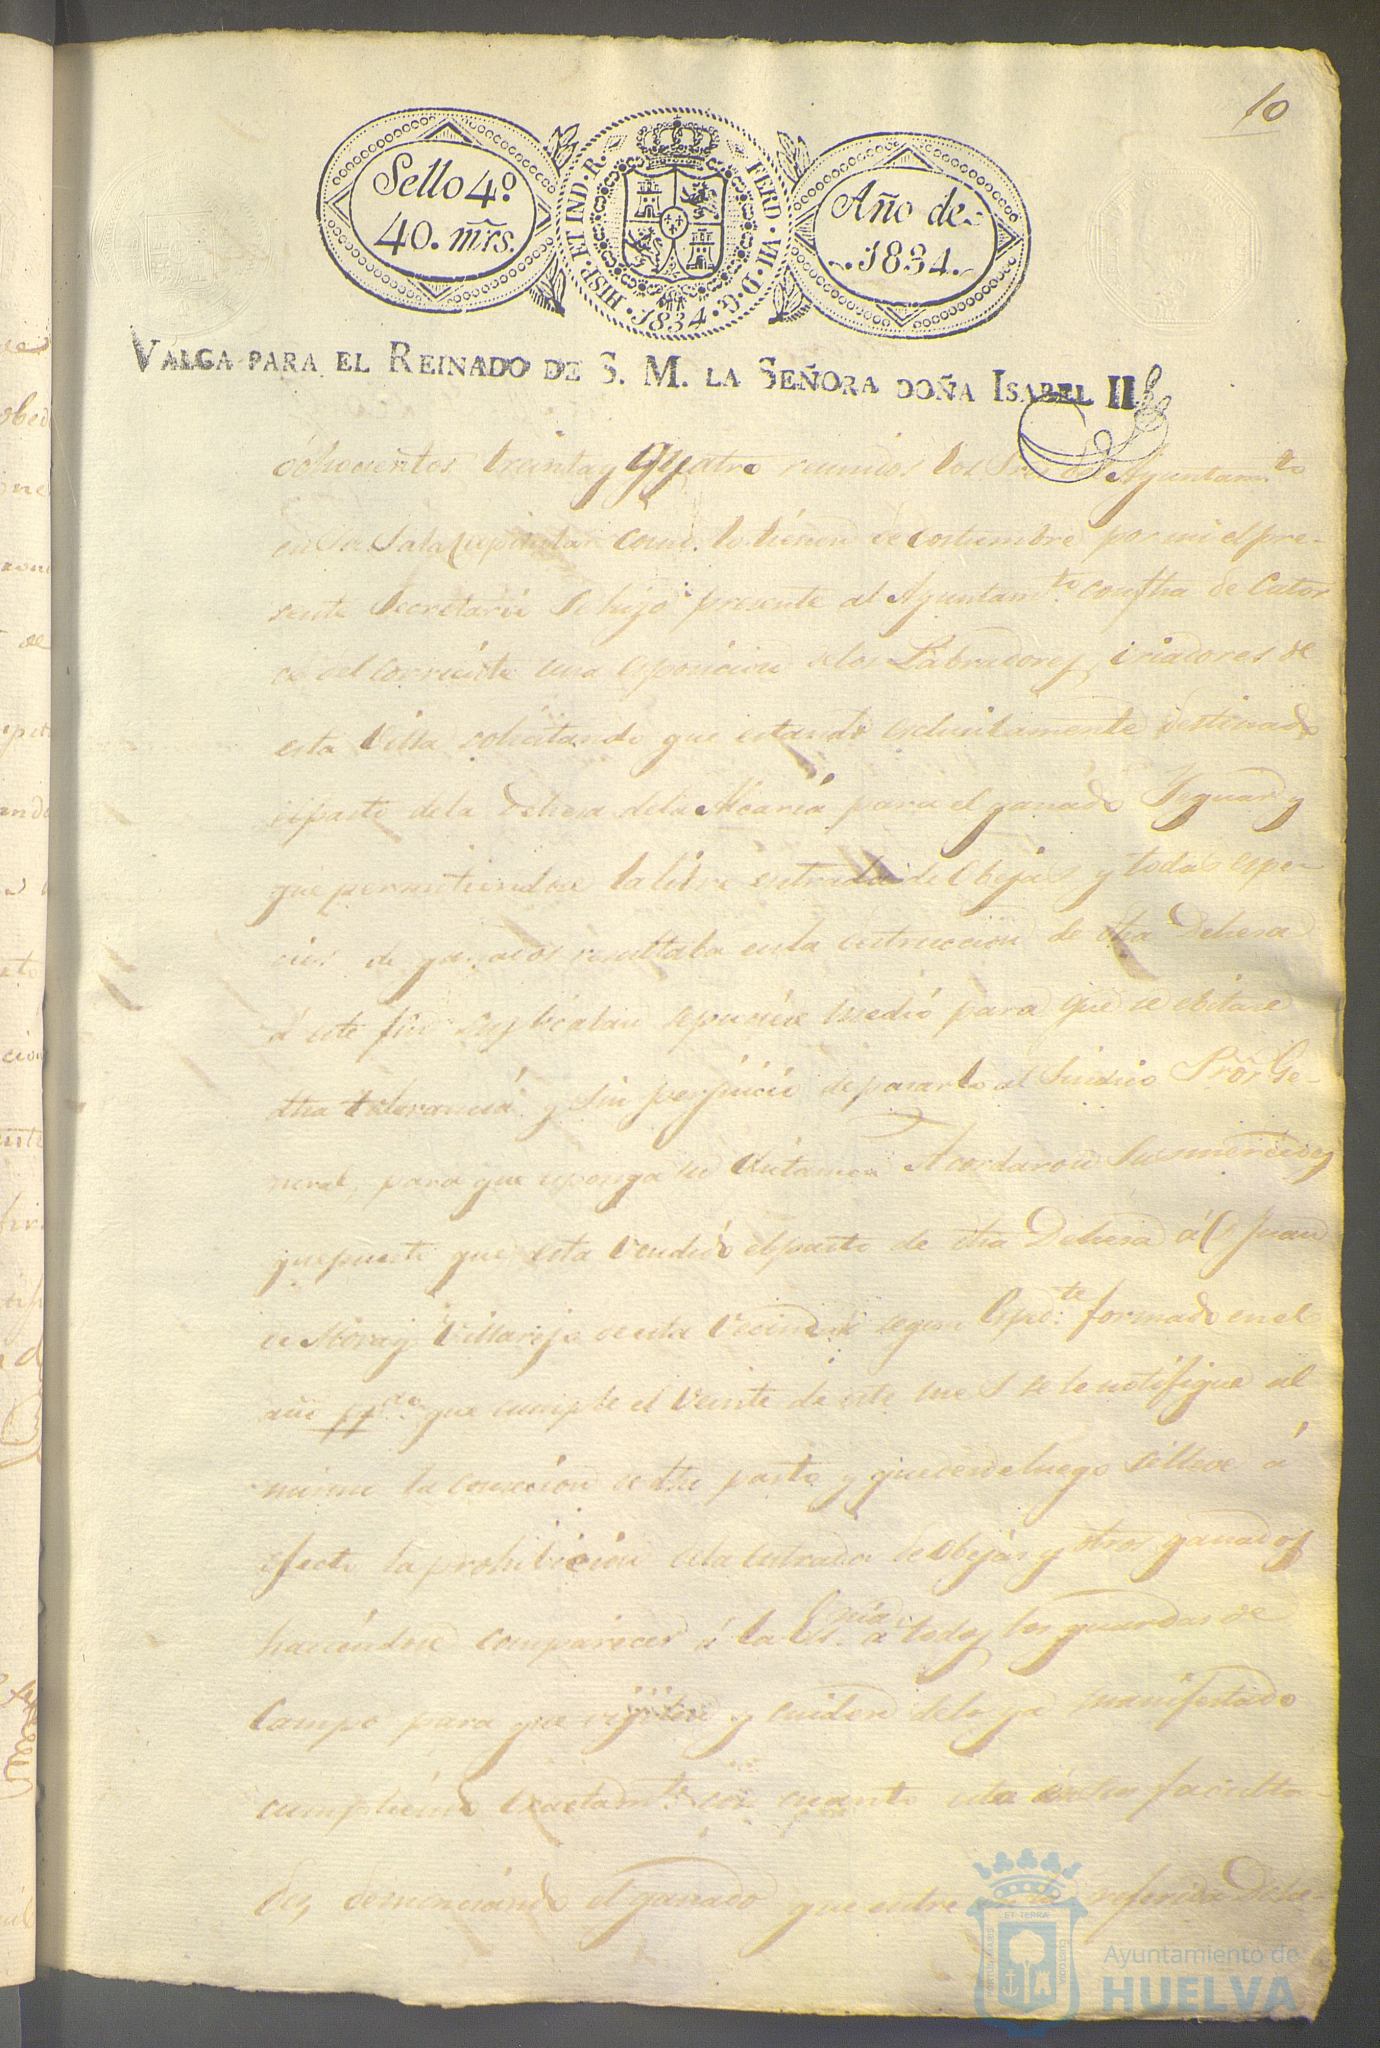 10
Sello 4º
40. mrs.
HISP. ET IND. R. FERD. VII. D. G. 1834.
Año de
1834.
VALGA PARA EL REINADO DE S. M. LA SEÑORA DOÑA ISABEL II
ochocientos treinta y Quatro reunidos los Sres del Ayuntam.to
en su Sala Capitular como lo tienen de costumbre por mi el pre-
sente Secretario se hizo presente al Ayuntam.to con fha de Cator
ce del corriente una esposicion de los Labradores, criadores de
esta Villa solicitando que estando esclusivamente destinado
el pasto de la Dehesa de la Alcaria para el ganado Yeguar y
que permitiendose la libre entrada de Obejas y todas espe-
cies de ganados resultaba en la destruccion de dha Dehesa
á este fin suplicaban se pusiese medio para que se ebitase
dha tolerancia y sin perjuicio de pasarlo al Sindico Pror Ge-
neral, para que esponga su dictamen Acordaron Sus mercedes
que puesto que esta vendido el pasto de dha Dehesa á Dn Juan
de Mora y Villarejo de esta Vecindad segun Esped.te formado en el
año pp.do que cumple el veinte de este mes se le notifique al
mismo la conclusion de dho pasto y que desde luego se lleve á
efecto la prohibicion de la entrada de obejas y otros ganados
haciendose comparecer á la Es.nia á todos los guardas de
Campo para que vijilen y cuiden de lo ya manifestado
cumpliendo exactam.te con cuanto esta en sus faculta-
des denunciando el ganado que entre en la referida Dehe-
Ayuntamiento de
HUELVA